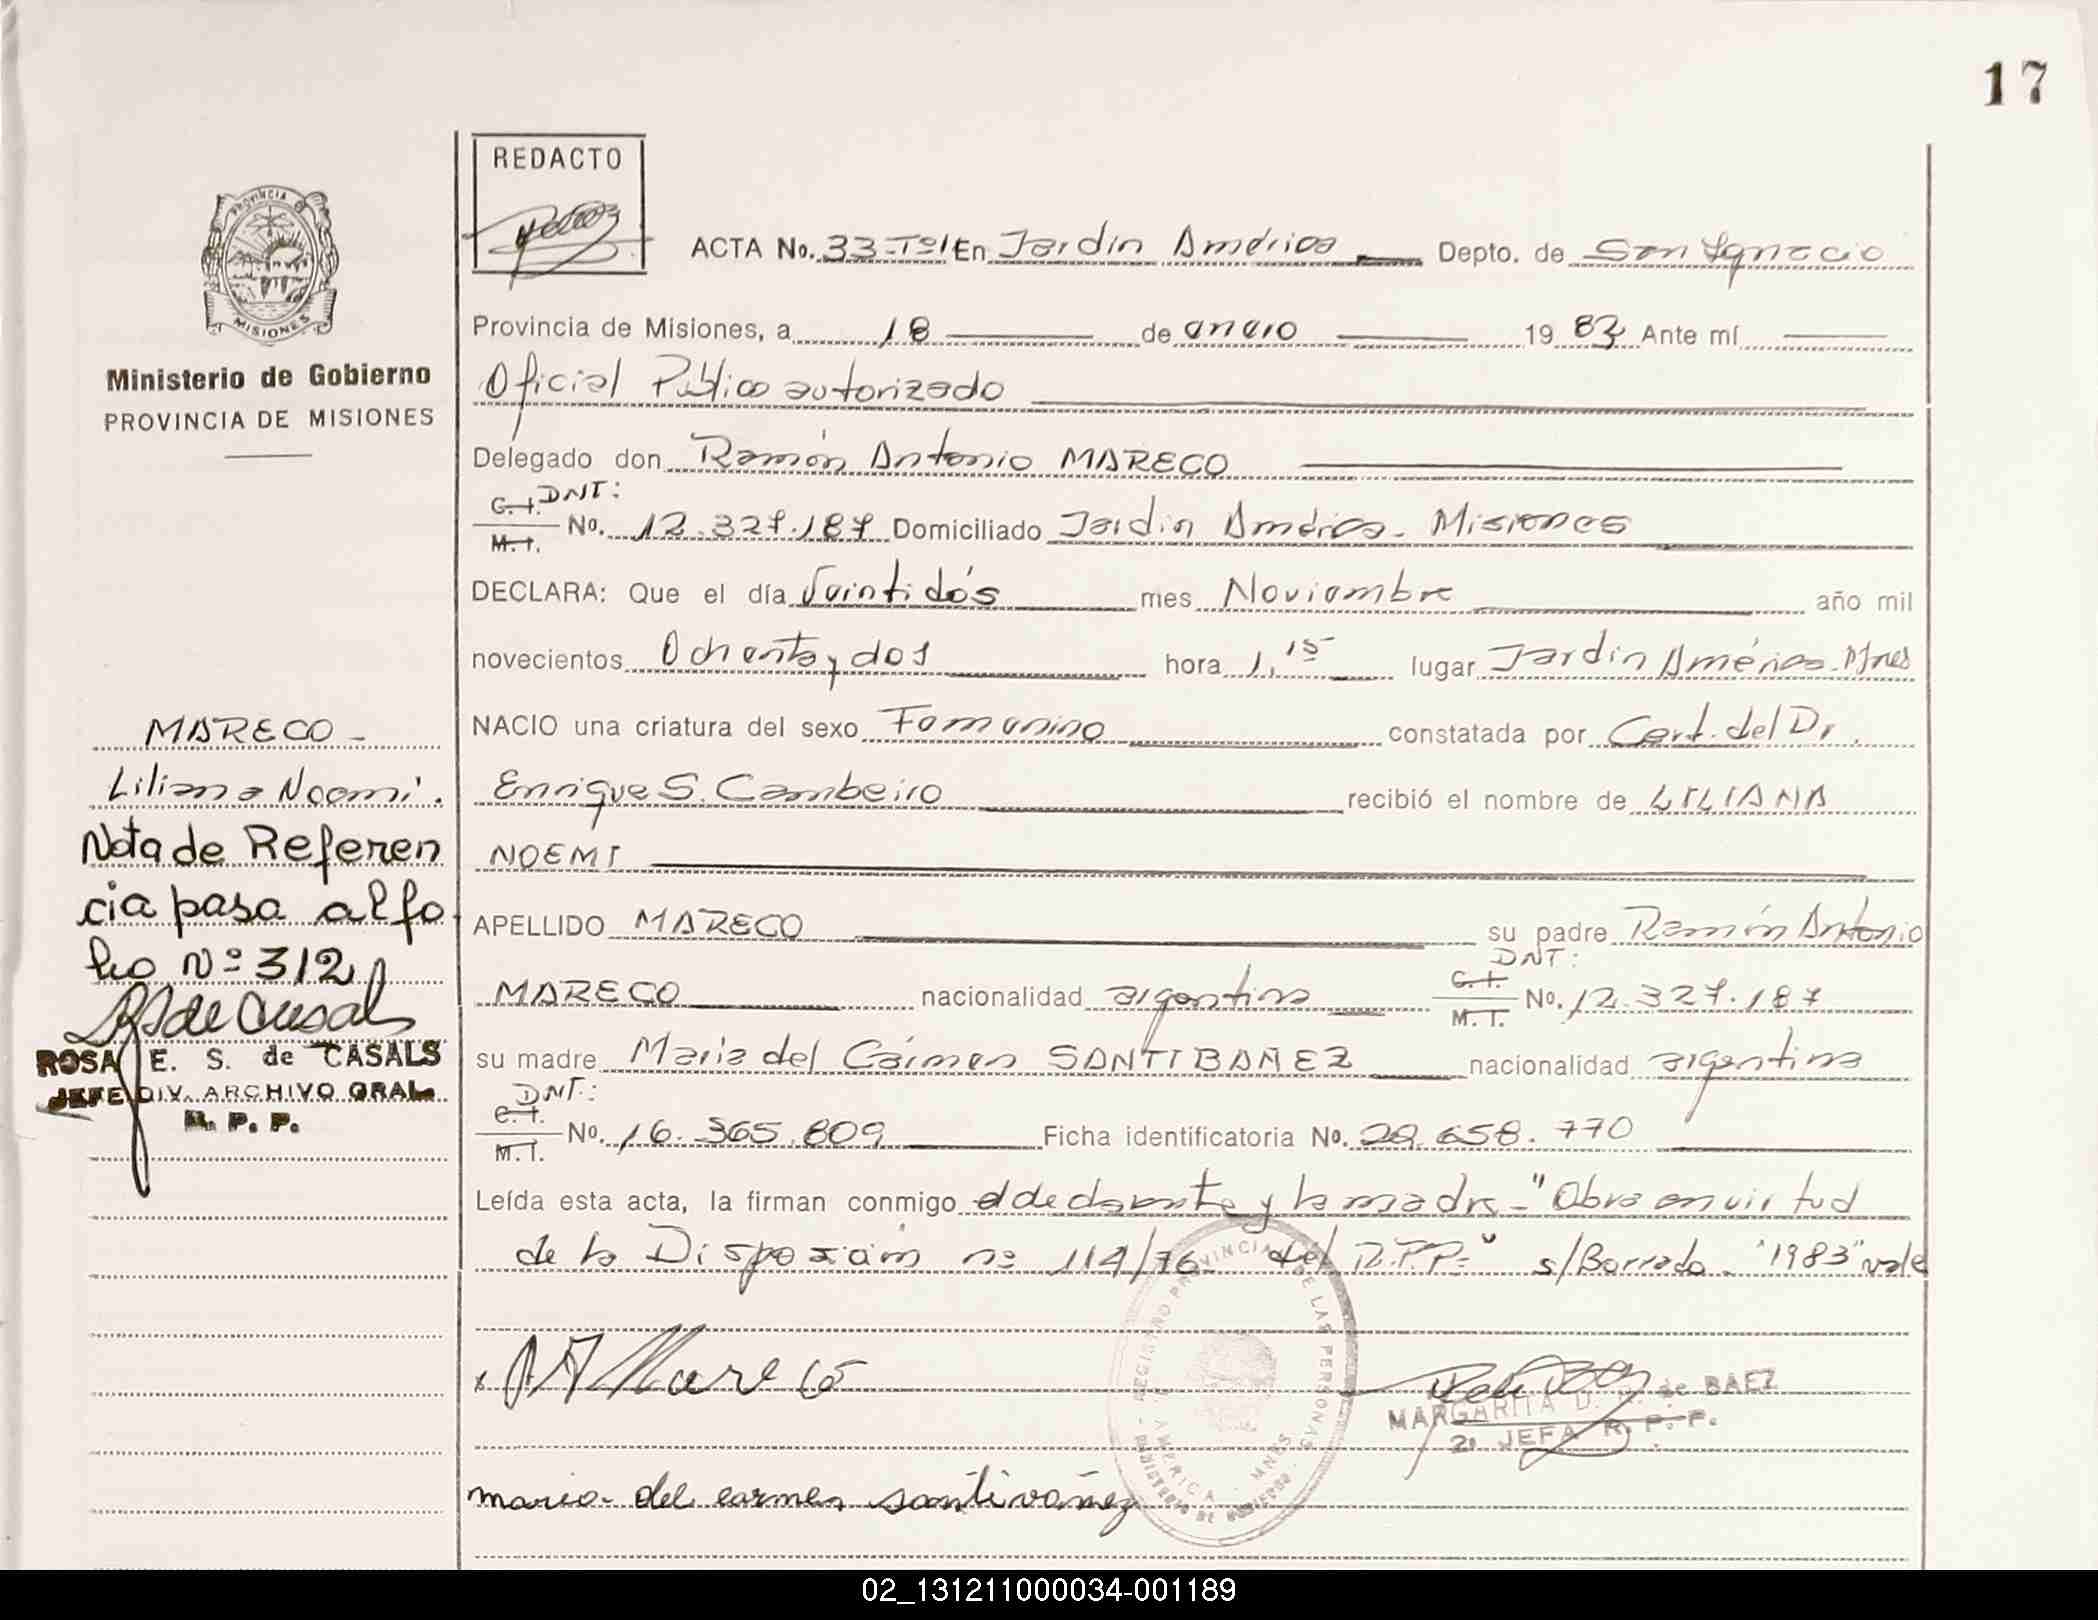 17
REDACTO
PROVINCIA D
MISIONES
Ministerio de Gobierno
PROVINCIA DE MISIONES
ACTA No. 33-Tº1 En Jardín América Depto. de San Ignacio
Provincia de Misiones, a 18 de enero 1983 Ante mí
Oficial Público autorizado
Delegado don Ramón Antonio MARECO
C.I. DNI:
M.I. No. 12.327.187 Domiciliado Jardín América - Misiones
DECLARA: Que el día Veintidós mes Noviembre año mil
novecientos Ochenta y dos hora 1,15 lugar Jardín América - Mnes
NACIO una criatura del sexo Femenino constatada por Cert. del Dr.
Enrique S. Cambeiro recibió el nombre de LILIANA
NOEMI
APELLIDO MARECO su padre Ramón Antonio
DNI:
MARECO nacionalidad argentina C.I. M.I. No. 12.327.187
su madre María del Cármen SANTIBAÑEZ nacionalidad argentina
DNI:
C.I. M.I. No. 16.365.809 Ficha identificatoria No. 29.658.770
Leída esta acta, la firman conmigo el declarante y la madre - "Obra en virtud
de la Disposición nº 114/76 del R.P.P." s/Borrado - "1983" vale
MARECO -
Liliana Noemí.
Nota de Referen
cia pasa al fo
lio Nº 312
RS de Casals
ROSA E. S. de CASALS
JEFE DIV. ARCHIVO GRAL.
R. P. P.
RA Mareco
REGISTRO PROVINCIAL DE LAS PERSONAS
AMERICA - MNES
MINISTERIO DE GOBIERNO
MARGARITA D. de BAEZ
2. JEFA R. P. P.
maria del carmen santivañez
02_131211000034-001189